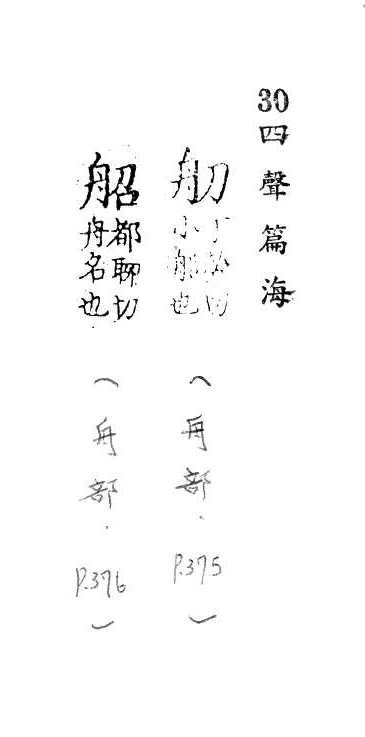 30
四聲篇海
舠
丁聊切
小船也
（舟部．P.375）
船
都聊切
舟名也
（舟部．P.376）